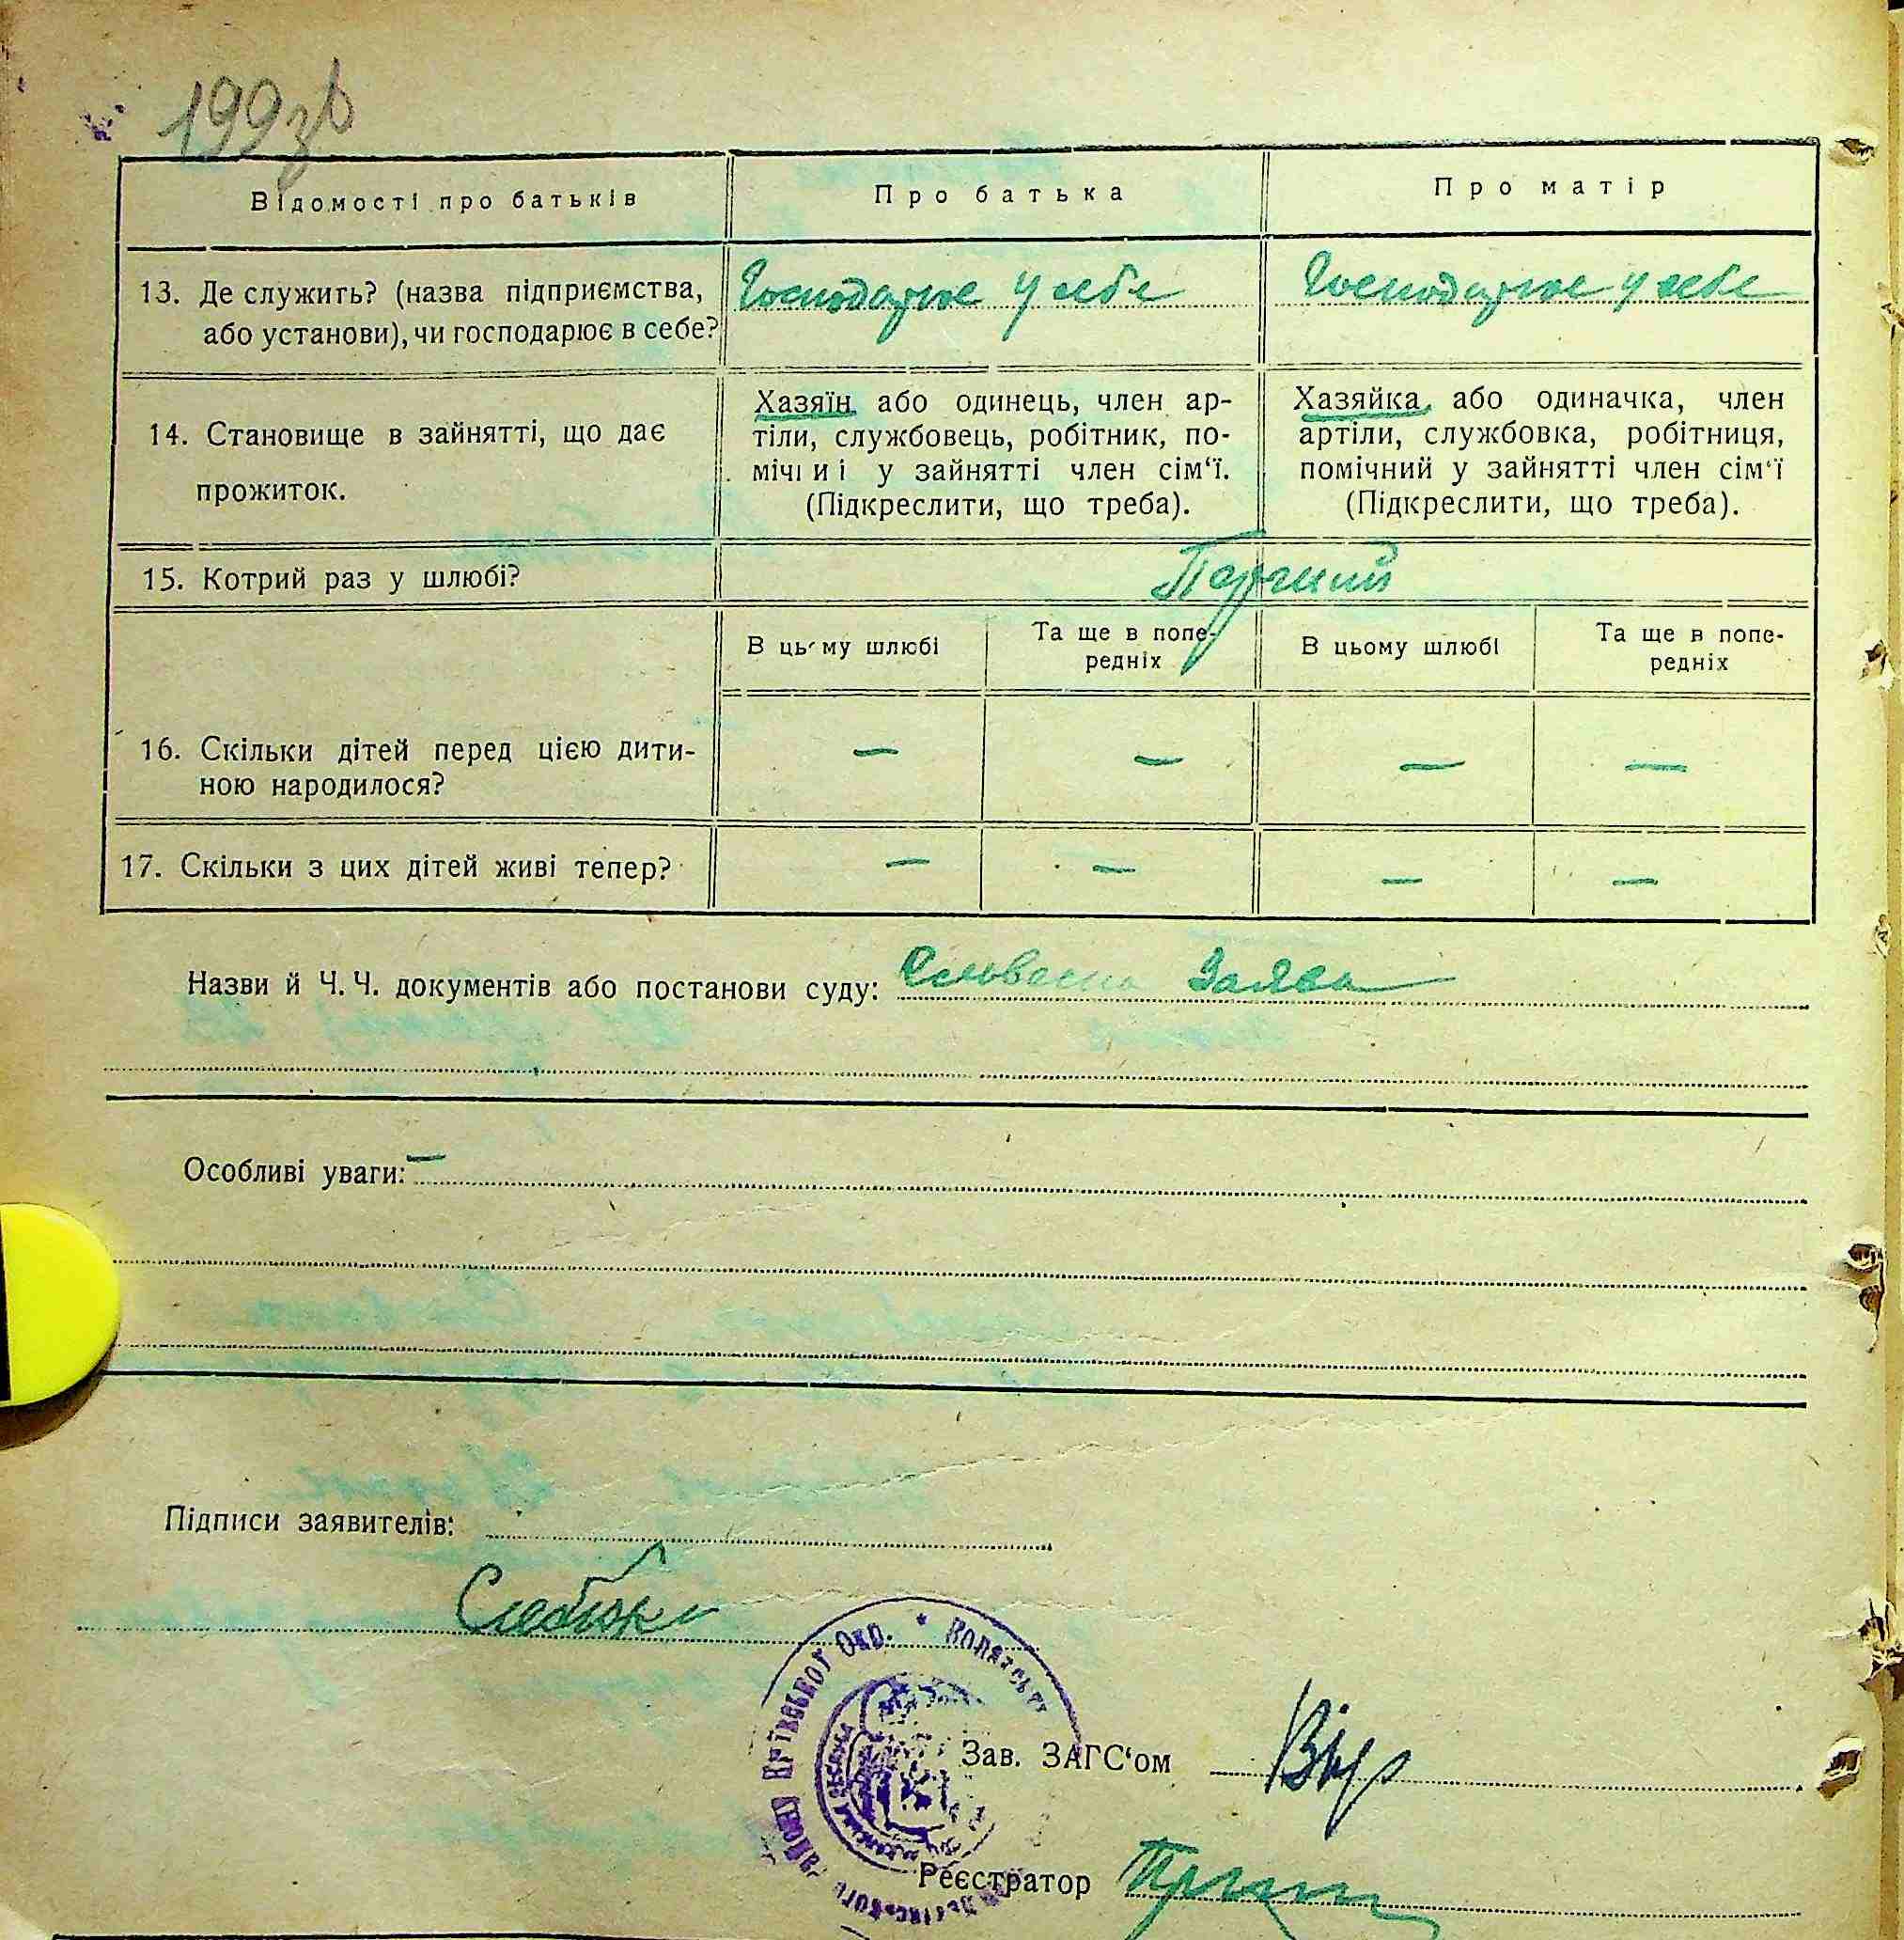 199зв
Відомості про батьків
Про батька
Про матір
13. Де служить? (назва підприємства,
або установи), чи господарює в себе?
Господарює у себе
Господарює у себе
14. Становище в зайнятті, що дає
прожиток.
Хазяїн, або одинець, член ар-
тіли, службовець, робітник, по-
мічний у зайнятті член сім‘ї.
(Підкреслити, що треба).
Хазяйка, або одиначка, член
артіли, службовка, робітниця,
помічний у зайнятті член сім‘ї
(Підкреслити, що треба).
15. Котрий раз у шлюбі?
Перший
В цьому шлюбі
Та ще в попе-
редніх
В цьому шлюбі
Та ще в попе-
редніх
16. Скільки дітей перед цією дити-
ною народилося?
— — — —
17. Скільки з цих дітей живі тепер?
— — — —
Назви й Ч. Ч. документів або постанови суду: Словесна Заява
Особливі уваги: —
Підписи заявителів:
Київської Окр. *
Зав. ЗАГС‘ом
Реєстратор